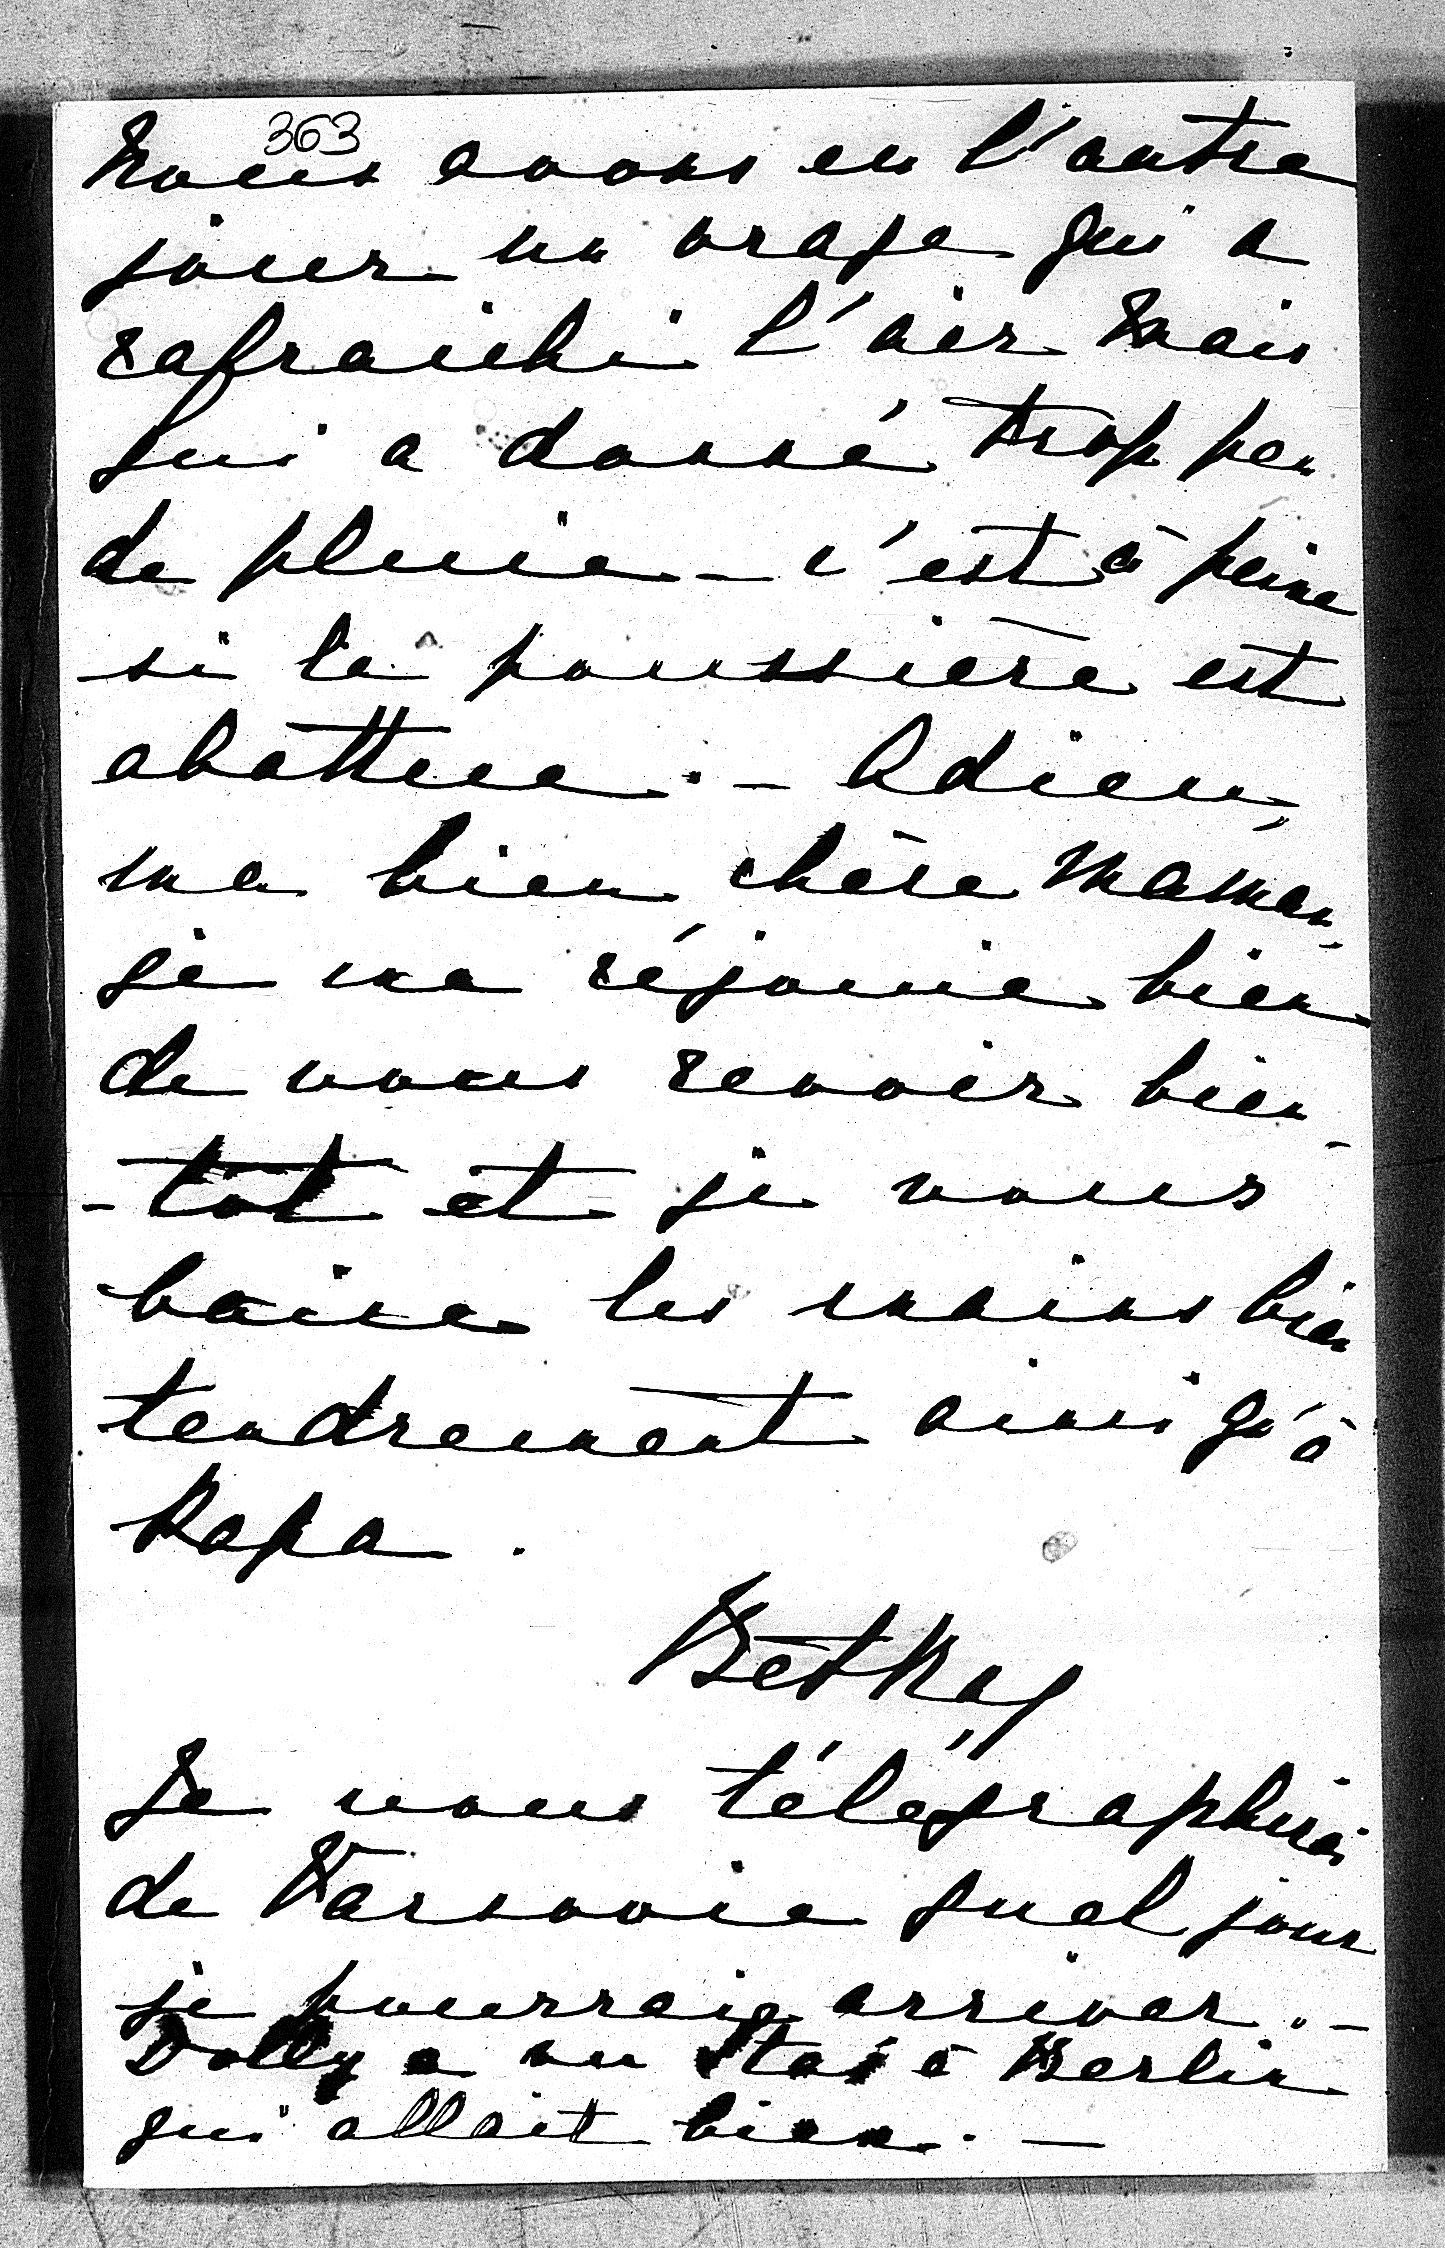 363
Nous avons eu l'autre
jour un orage qui a
rafraichi l'air mais
qui a donné trop peu
de pluie - c'est à peine
si la poussière est
abattue. - Adieu,
ma bien chère Maman,
je me réjouie bien
de vous revoir bien-
-tôt et je vous
baise les mains bien
tendrement ainsi qu'à
Papa.
Betka
Je vous télégraphierai
de Varsovie quel jour
je pourrais arriver. -
Dolly a vu Stas à Berlin
qui allait bien. -